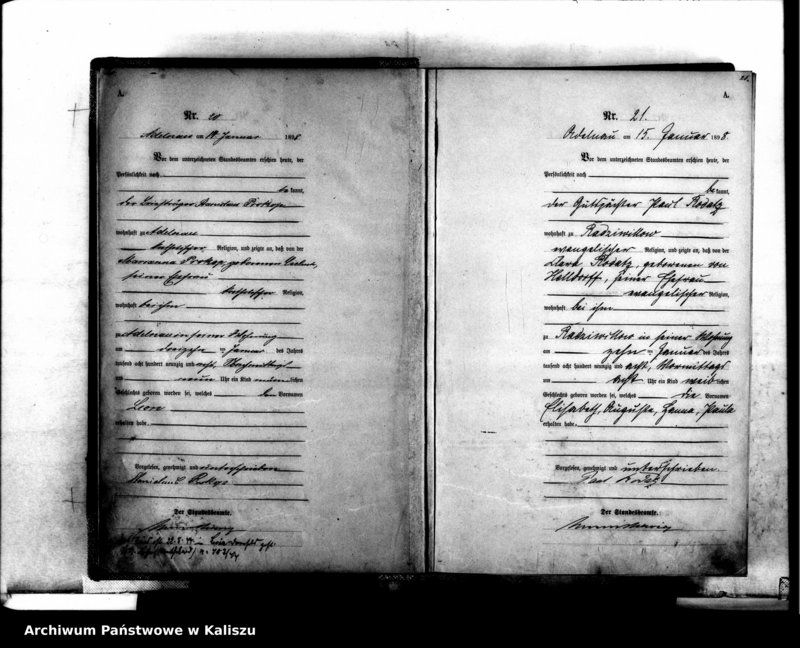 A.
Nr. 20
Adelnau am 14. Januar 1898
Vor dem unterzeichneten Standesbeamten erschien heute, der
Persönlichkeit nach
bekannt,
der Prokop
wohnhaft zu Adelnau
katholischer Religion, und zeigte an, daß von der
Marianna Prokop geborenen
seiner Ehefrau
katholischer Religion,
wohnhaft bei ihm
zu Adelnau in seiner Wohnung
am dreizehn ten Januar des Jahres
tausend acht hundert neunzig und acht, Nachmittags
um neun Uhr ein Kind männlichen
Geschlechts geboren worden sei, welches den Vornamen
Leon
erhalten habe.
Vorgelesen, genehmigt und unterschrieben
Der Standesbeamte.
21.
A.
Nr. 21.
Adelnau am 15. Januar 1898.
Vor dem unterzeichneten Standesbeamten erschien heute, der
Persönlichkeit nach
bekannt,
der Gutspächter Paul Rodatz
wohnhaft zu Radziwillow
evangelischer Religion, und zeigte an, daß von der
Clara Rodatz, geborenen von
Helldorff, seiner Ehefrau
evangelischer Religion,
wohnhaft bei ihm
zu Radziwillow in seiner Wohnung
am zehn ten Januar des Jahres
tausend acht hundert neunzig und acht, Vormittags
um acht Uhr ein Kind weiblichen
Geschlechts geboren worden sei, welches die Vornamen
Elisabeth, Auguste, Hanna, Paula
erhalten habe.
Vorgelesen, genehmigt und unterschrieben.
Paul Rodatz
Der Standesbeamte.
Archiwum Państwowe w Kaliszu